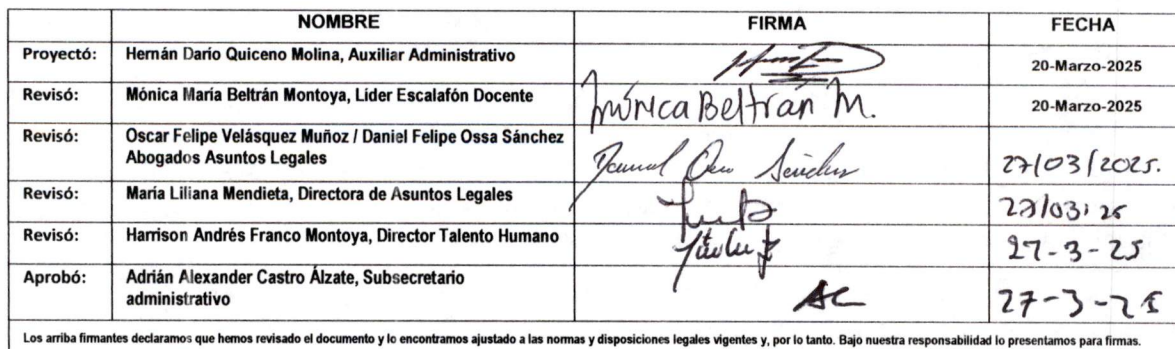 NOMBRE FIRMA FECHA
Proyectó: Hernán Darío Quiceno Molina, Auxiliar Administrativo 20-Marzo-2025
Revisó: Mónica María Beltrán Montoya, Líder Escalafón Docente Mónica Beltrán M. 20-Marzo-2025
Revisó: Oscar Felipe Velásquez Muñoz / Daniel Felipe Ossa Sánchez
Abogados Asuntos Legales 27/03/2025.
Revisó: María Liliana Mendieta, Directora de Asuntos Legales
Revisó: Harrison Andrés Franco Montoya, Director Talento Humano 27-3-25
Aprobó: Adrián Alexander Castro Álzate, Subsecretario
administrativo AC 27-3-25
Los arriba firmantes declaramos que hemos revisado el documento y lo encontramos ajustado a las normas y disposiciones legales vigentes y, por lo tanto. Bajo nuestra responsabilidad lo presentamos para firmas.